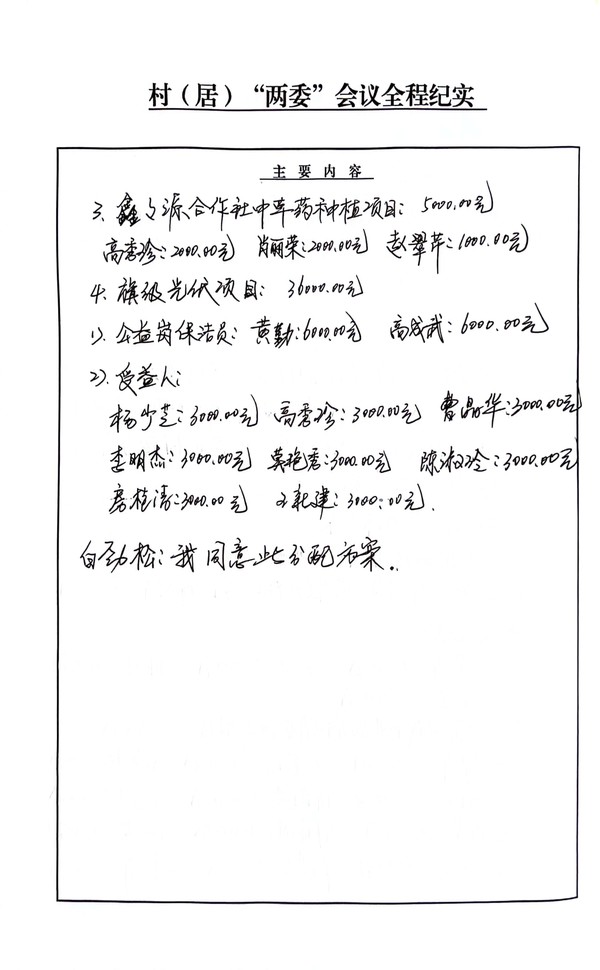 村（居）“两委”会议全程纪实
主要内容
3、鑫文源合作社中草药种植项目：5000.00元
高秀珍：2000.00元 肖丽荣：2000.00元 赵翠苹：1000.00元
4、旗级光伏项目：36000.00元
1）、公益岗保洁员：黄勤：6000.00元 高成武：6000.00元
2）、受益人：
杨少芝：3000.00元 高秀珍：3000.00元 曹晶华：3000.00元
李明杰：3000.00元 莫艳秀：3000.00元 陈淑玲：3000.00元
房桂清：3000.00元 王建：3000.00元.
白劲松：我同意此分配方案.